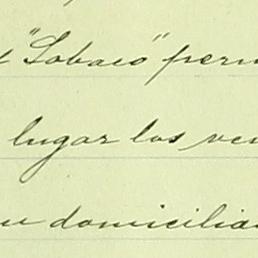 "Lobaco" perm
lugar los ve
domicilia